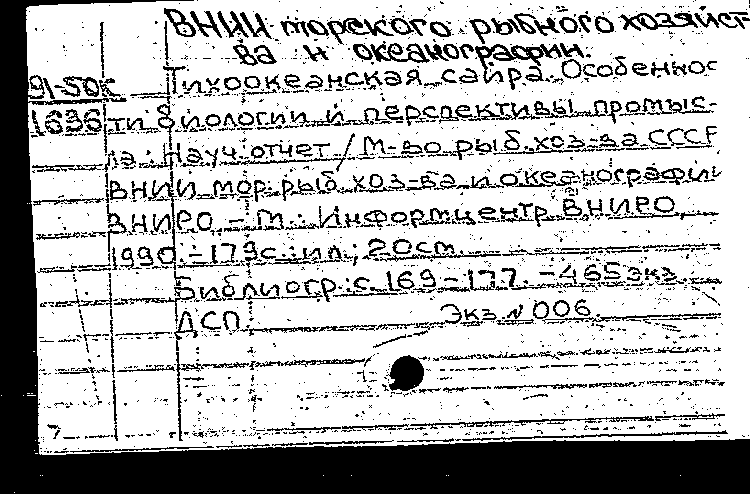 ВНИИ морского рыбного хозяйст
ва и океанографии.
91-50к Тихоокеанская сайра. Особеннос
1636 ти биологии и перспективы промыс-
ла: Науч. отчет / М-во рыб. хоз-ва СССР
ВНИИ мор. рыб. хоз-ва и океанографии
ВНИРО. – М.: Информцентр ВНИРО,
1990. – 179с.: ил.; 20см.
Библиогр.: с. 169–177. – 465 экз.
ДСП. Экз. № 006.